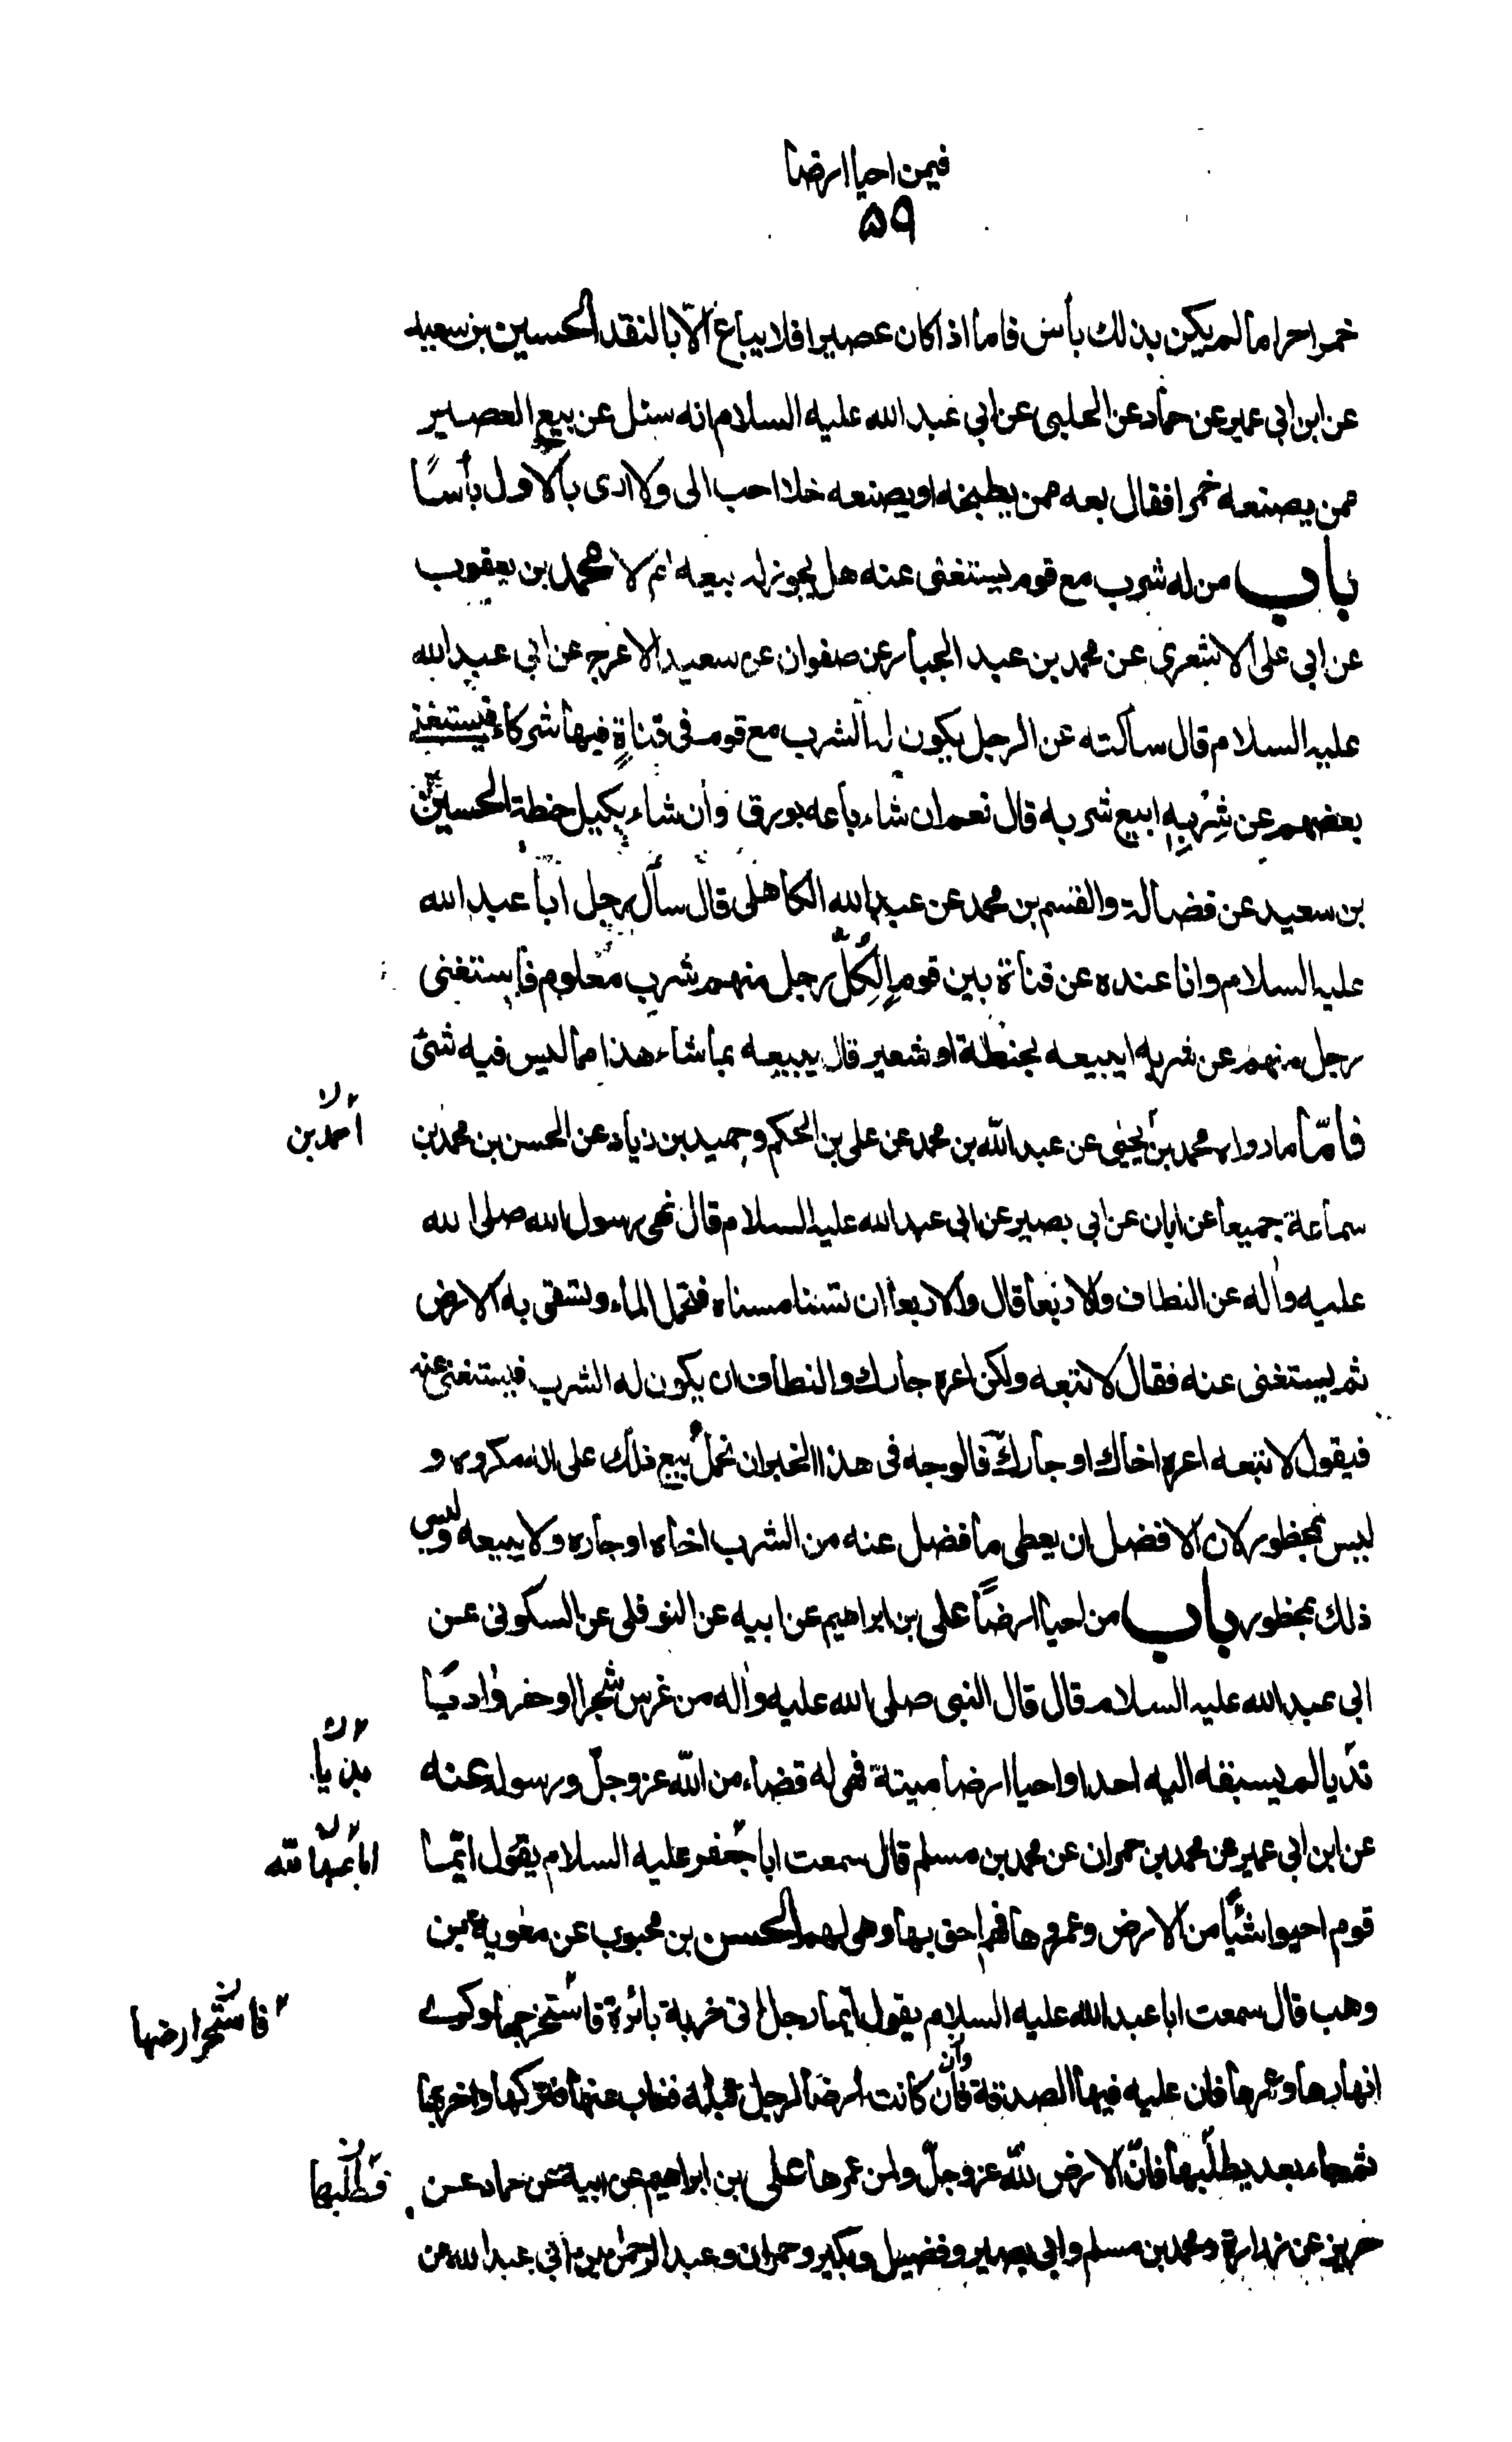 فيمن احيا ارضا
۵۹
خمرا حراما لم يكن بذلك بأس فاما اذا كان عصيرا فلا يباع الّا بالنقد الحسين بن سعيد
عن ابن ابي عمير عن حماد عن الحلبي عن ابي عبد الله عليه السلام انه سئل عن بيع العصير
ممن يصنعه خمرا فقال بعه ممن يطبخه او يصنعه خلا احب الى ولا ارى بالاول بأسًا
باب من له شرب مع قوم يستغنى عنه هل يجوز له بيعه ام لا محمد بن يعقوب
عن ابى على الاشعرى عن محمد بن عبد الجبار عن صفوان عن سعيد الاعرج عن ابى عبد الله
عليه السلام قال سألته عن الرجل يكون له الشرب مع قوم فى قناةٍ فيها شركاء فيستغنى
بعضهم عن شِرْبِهِ ايبيع شربه قال نعم ان شاء باعه بورق وان شاء بكيل حنطة الحسين
بن سعيد عن فضالة والقسم بن محمد عن عبد الله الكاهلى قال سأل رجل ابا عبد الله
عليه السلام وانا عنده عن قناة بين قومٍ لِكُلِّ رجل منهم شرب معلوم فاستغنى
رجل منهم عن شربه ايبيعه بحنطة او شعير قال يبيعه بما شاء هذا مما ليس فيه شئ
فامّا ما رواه محمد بن يحيى عن عبد اللّه بن محمد عن على بن الحكم وحميد بن زياد عن الحسن بن محمد بن
احمد بن
سماعة جميعا عن ابان عن ابى بصير عن ابى عبد الله عليه السلام قال نهى رسول الله صلى الله
عليه واله عن النطاف والاربعا قال والاربعا ان تسنا مسناه فتحمل الماء وتسقى به الارض
ثم يستغنى عنه فقال لا تبعه ولكن اعره جارك والنطاف ان يكون له الشرب فيستغنى عنه
فيقول لا تبعه اعره اخاك او جارك فالوجه فى هذا الخبر ان نحمل بيع ذلك على انه مكروه و
ليس بمحظور لان الافضل ان يعطى ما فضل عنه من الشرب اخاه او جاره ولا يبيعه وليس
ذلك بمحظور باب من احيا ارضًا على بن ابراهيم عن ابيه عن النوفلى عن السكونى عن
ابى عبد الله عليه السلام قال قال النبى صلى الله عليه واله من غرس شجرا او حفر واديًا
بديا لم يسبقه اليه احد او احيا ارضا ميتة فهى له قضاء من اللّه عز وجلّ ورسوله عنه
بديا
عن ابن ابى عمير عن محمد بن حمران عن محمد بن مسلم قال سمعت ابا جعفر عليه السلام يقول ايّما
ابا عبد الله
قوم احيوا شيًا من الارض وعمروها فهم احق بها وهى لهم الحسن بن محبوب عن معوية بن
وهب قال سمعت ابا عبد الله عليه السلام يقول ايّما رجل اتى خربة بائرة فاستخرجها وكرى
انهارها وعمرها فان عليه فيها الصدقة فان كانت ارضا لرجل قبله فغاب عنها فتركها واخربها
وان
ثم جاء بعد يطلبها فانّ الارض للّه عز وجلّ ولمن عمرها على بن ابراهيم عن ابيه عن حماد عن
فطلبها
حريز عن زرارة ومحمد بن مسلم وابى بصير وفضيل وبكير وحمران وعبد الرحمن بن ابى عبد الله عن